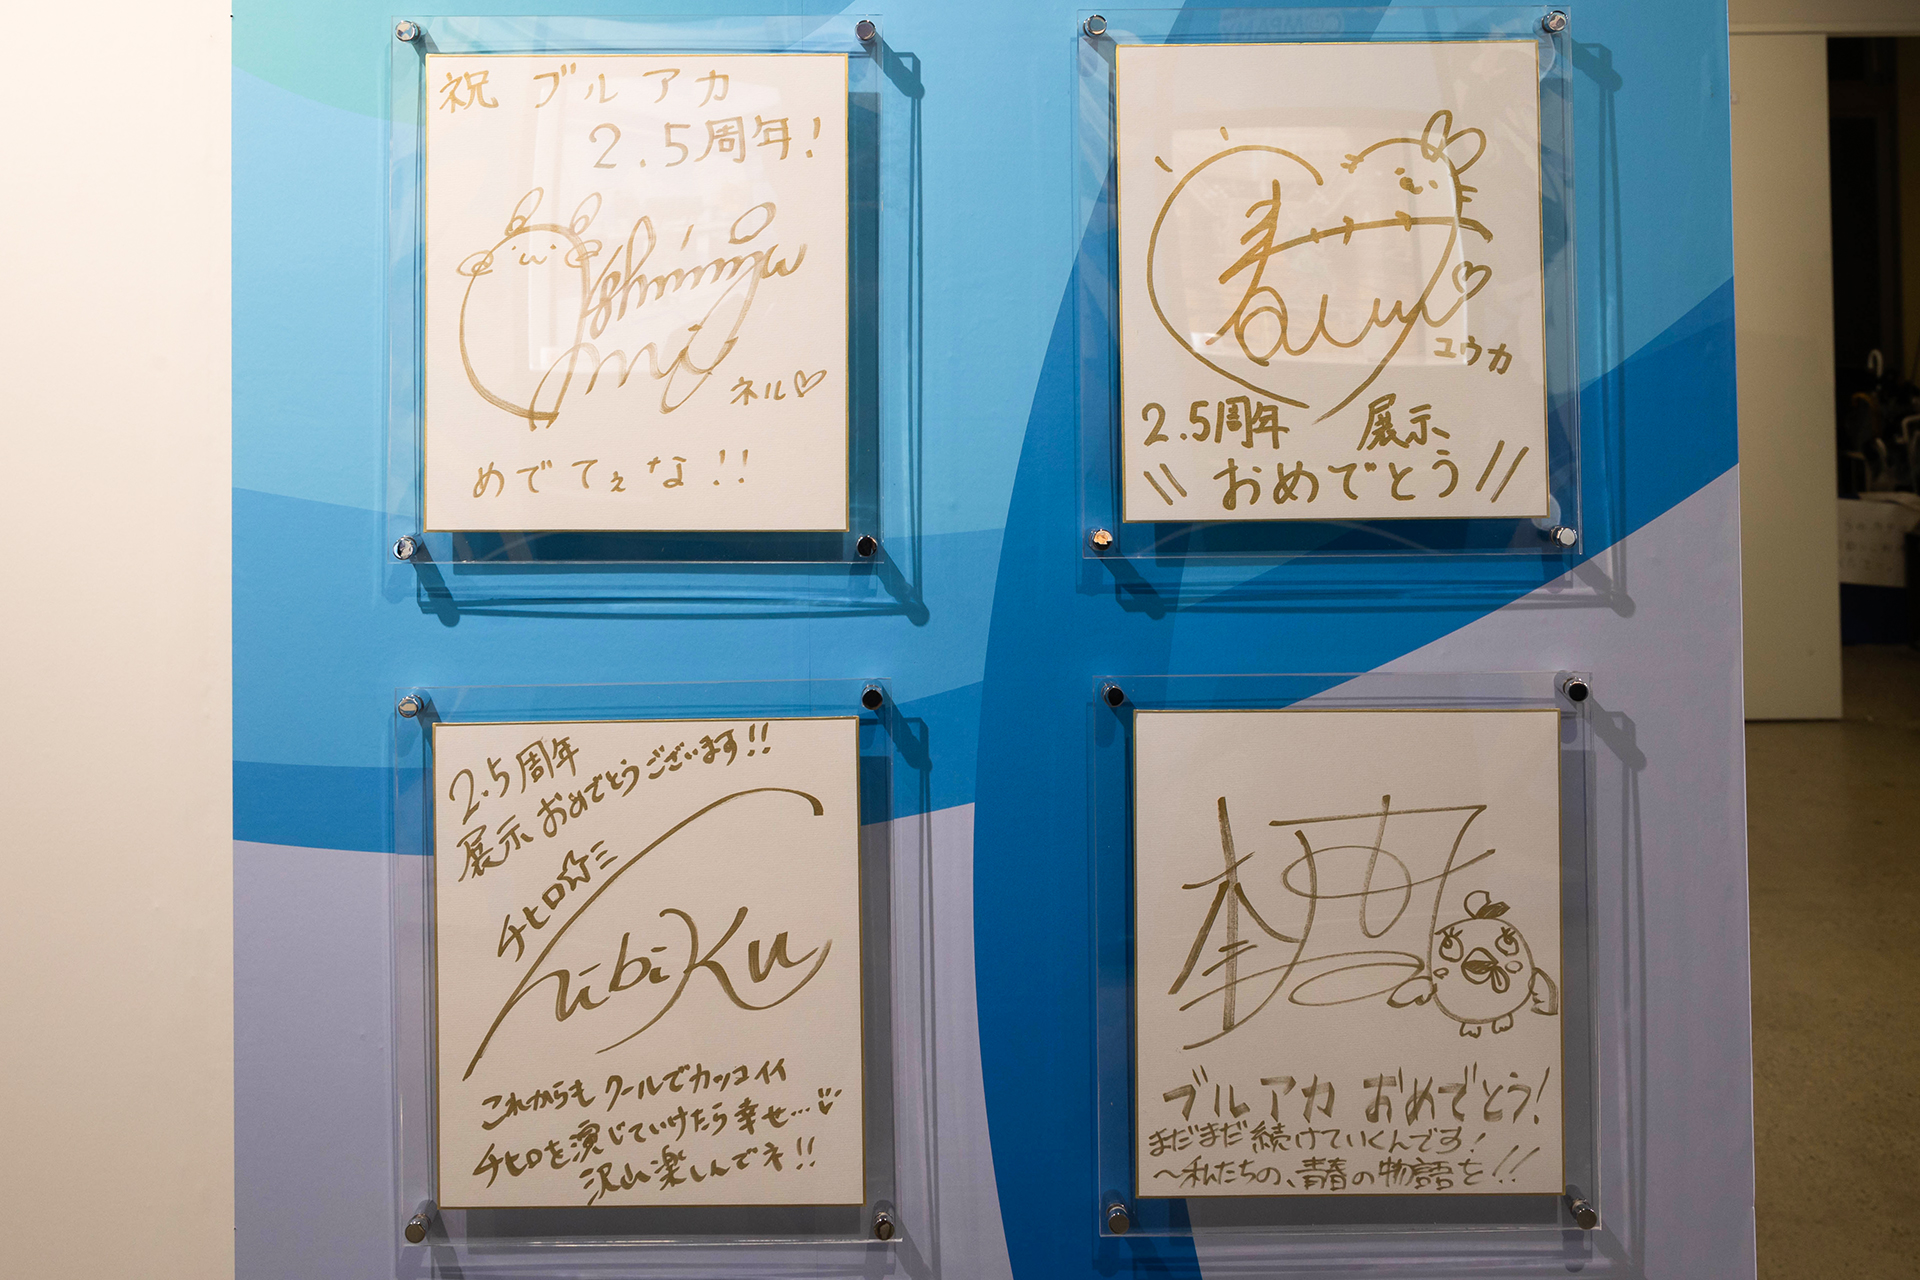 祝 ブルアカ
2.5周年!
ネル♡
めでてぇな!!
ユウカ
2.5周年 展示
\\ おめでとう //
2.5周年
展示おめでとうございます!!
チヒロ☆ミ
hibiku
これからもクールでカッコイイ
チヒロを演じていけたら幸せ…
沢山楽しんでネ!!
ブルアカ おめでとう!
まだまだ続けていくんです!
～私たちの、青春の物語を!!